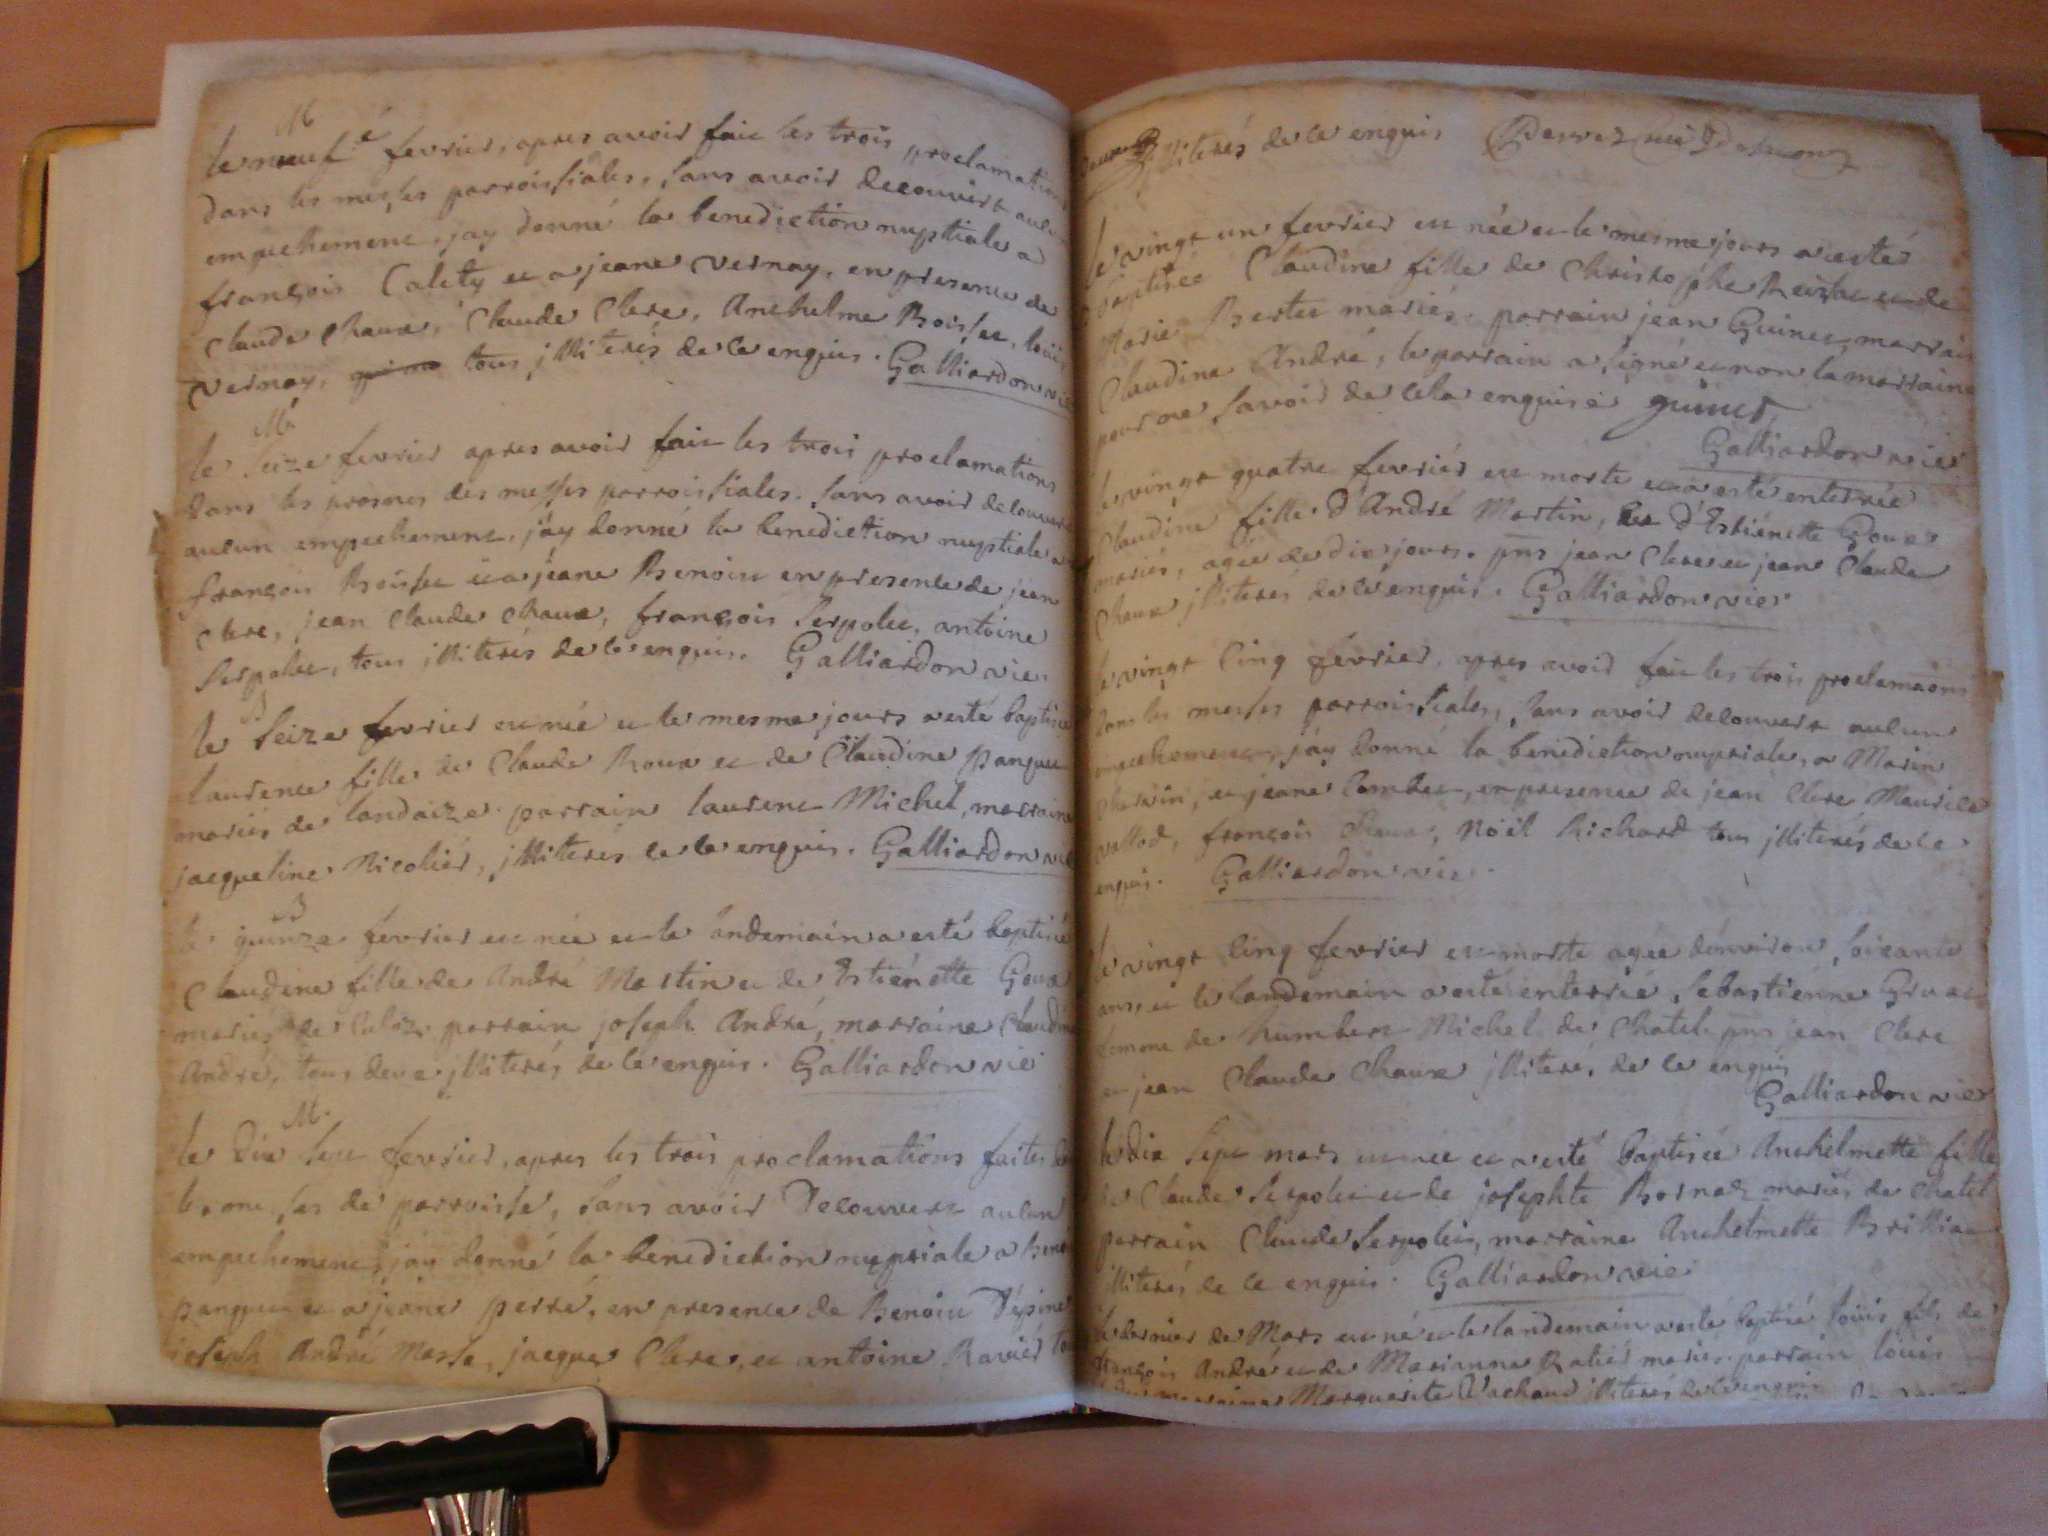 M
le neuf e fevrier, apres avoir fait les trois proclamations
dans les messes parroissiales, sans avoir decouvert aucun
empechement, jay donné la benediction nuptiale a
françois Calety et a jeane vernay, en presence de
Claude Chaux, Claude Clerc, Anthelme Boisset, loüis
vernay, tous jlliterés de ce enquis. Galliardon vic
M.
le seize fevrier apres avoir fait les trois proclamations
dans les prosnes des messes parroissiales. sans avoir decouvert
aucun empechement, jay donné la benediction nuptiale a
françois et a jeane Benoit en presence de jean
Clerc, jean Claude Chaux, françois Serpolet, antoine
Serpolet, tous jlliterés de ce enquis. Galliardon vic.
B
le seize fevrier et née et le mesme jours a esté baptisée
laurence fille de Claude Roux et de Claudine panguet
mariés de landaize parrain laurent Michel, marraine
jacqueline Nicolier, jlliterés de ce enquis. Galliardon vic
B
le quinze fevrier et née et le landemain a esté baptisée
Claudine fille de André Martin et de Estiénette Goux
mariés de parrain joseph André, marraine Claudine
André, tous deux jlliterés de ce enquis. Galliardon vic
M.
le dix sept fevrier, apres les trois proclamations faites
messes de parroisse, sans avoir decouvert aucun
empechement, jay donné la benediction nuptiale a
panguet et a jeane perré, en presence de Benoit Dépine
joseph André Masse, jacques Clerc, et antoine Ravier
jlliterés de ce enquis
le vingt un fevrier et née et le mesme jours a esté
baptisée Claudine fille de Christophe et de
Marie mariés. parrain jean Guinet, marraine
Claudine André, le parrain a signé et non la marraine
pour ne savoir de cela enquise guinet
Galliardon vic
le vingt quatre fevrier et morte et a esté enterrée
Claudine fille d'André Martin, d'Estiénette Goux
mariés, agée de dix jours. pns jean Clerc et jean Claude
Chaux jlliterés de ce enquis. Galliardon vic.
le vingt cinq fevrier, apres avoir fait les trois proclamaons
dans les messes parroissiales, sans avoir decouvert aucun
empechement, jay donné la benediction nuptiale, a Marin
et jeane Combet, en presence de jean Clerc Maurice
vallod, françois Chaux, Noël Richard tous jlliterés de ce
enquis. Galliardon vic.
le vingt cinq fevrier et morte agée d'environ soixante
ans, et le landemain a esté enterrée Sebastiénne
femme de humbert Michel de Chatel pns jean Clerc
et jean Claude Chaux jlliteré, de ce enquis
Galliardon vic
le dix sept mars et née et a esté baptisée Anthelmette fille
de Claude Serpolet et de josephte Bornaz mariés de Chatel
parrain Claude Serpolet, marraine Anthelmette
jlliterés de ce enquis. Galliardon vic.
le dernier de Mars et né et le landemain a esté baptisé loüis fils de
françois André et de Marianne mariés. parrain loüis
marraine Marguerite Vachaud jlliterés de ce enquis